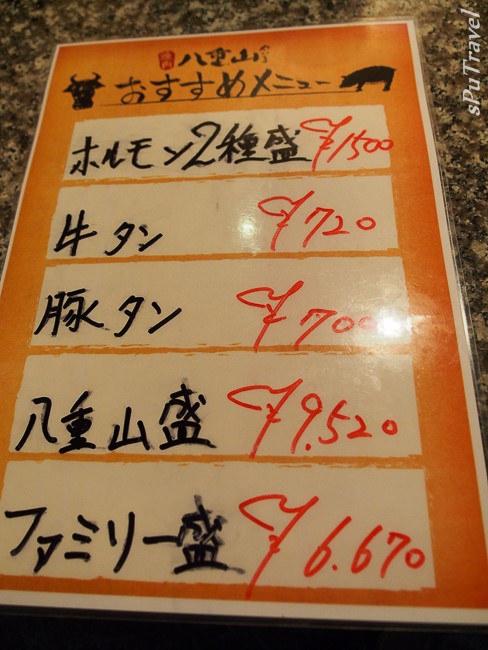 八重山
おすすめメニュー
ホルモン2種盛 ¥1500
牛タン ¥720
豚タン ¥700
八重山盛 ¥9.520
ファミリー盛 ¥6.670
sPuTravel